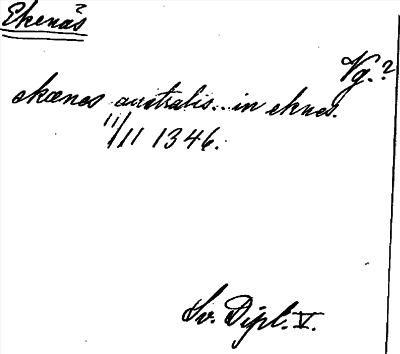 Ekenäs?
Vg.?
ekænes australis.. in eknes.
11/11 1346.
Sv. Dipl. V.